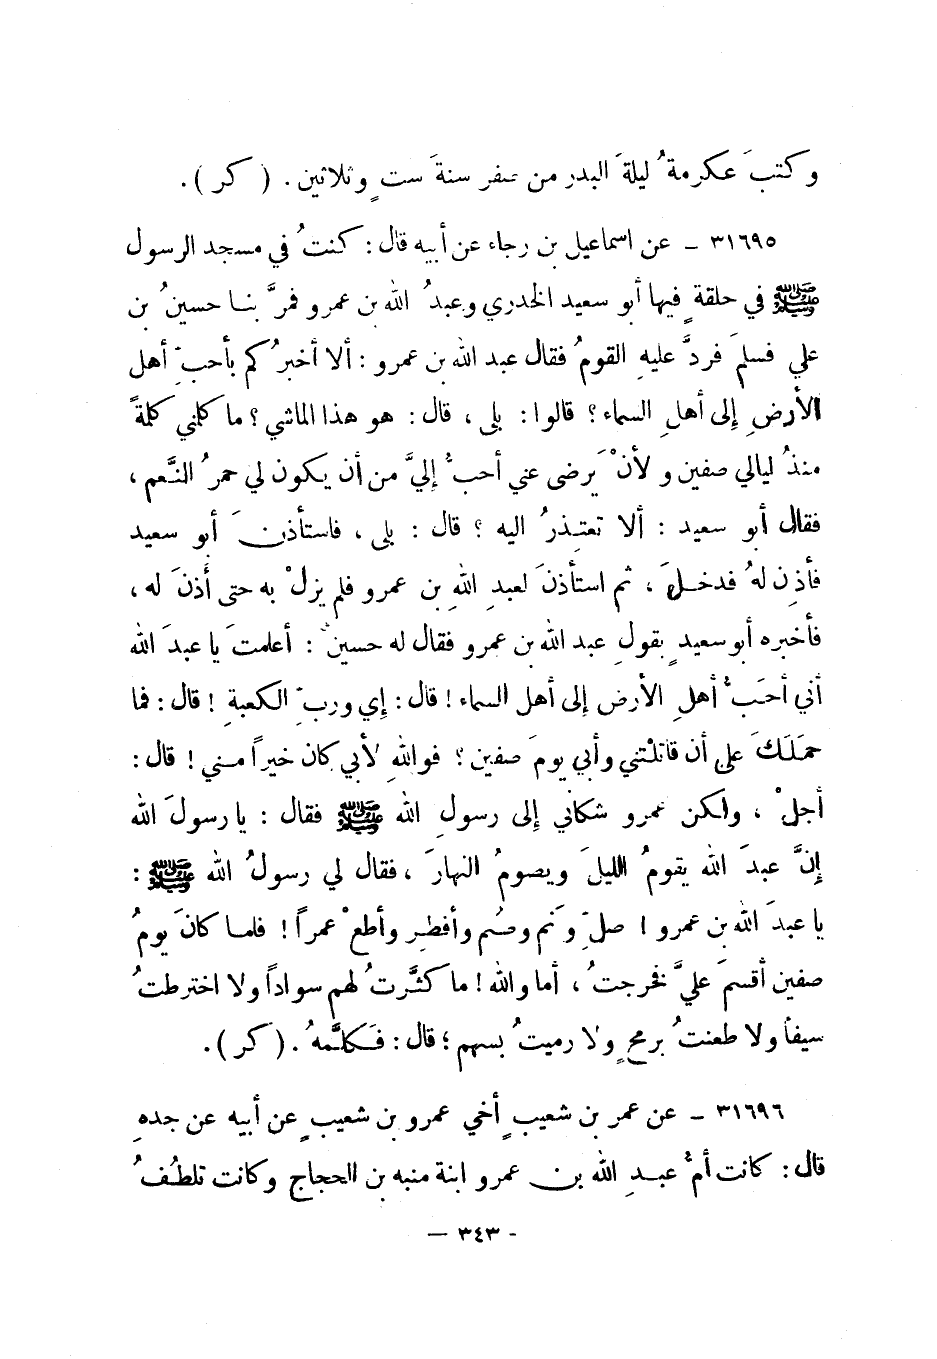 وكتبَ عكرمةُ ليلةَ البدر من صفر سنةَ ستٍ وثلاثين. ( كر ).
٣١٦٩٥ - عن اسماعيل بن رجاء عن أبيه قال: كنتُ في مسجد الرسول
ﷺ في حلقةٍ فيها أبو سعيد الخدري وعبدُ الله بن عمرو فمرَّ بنا حسينُ بن
علي فسلمَ فردَّ عليه القومُ فقال عبد الله بن عمرو : ألا أخبرُكم بأحبِّ أهل
الأرضِ إلى أهلِ السماء؟ قالوا: بلى ، قال: هو هذا الماشي؟ ما كلمني كلمةً
منذُ ليالي صفين ولأنْ يَرضى عني أحبُّ إليَّ من أن يكون لي حمرُ النَّعم ،
فقال أبو سعيد : ألا تعتـذرُ اليه ؟ قال : بلى ، فاستأذنَ أبو سعيد
فأذِن لهُ فدخـلَ ، ثم استأذنَ لعبدِ اللهِ بن عمرو فلم يزلْ به حتى أَذنَ له ،
فأخبره أبو سعيدٍ بقولِ عبد الله بن عمرو فقال له حسينٌ : أعلمتَ يا عبدَ الله
أني أحَبُّ أهلِ الأرض إلى أهل السماء! قال: إي وربِّ الكعبةِ ! قال: فما
حمَلَكَ على أن قاتلْتني وأبي يومَ صفين؟ فواللهِ لأبي كان خيراً مني ! قال:
أجلْ ، ولكن عمرو شكاني إلى رسولِ الله ﷺ فقال : يا رسولَ الله
إنَّ عبدَ الله يقومُ الليلَ ويصومُ النهارَ ، فقال لي رسولُ الله ﷺ :
يا عبدَ الله بن عمرو ! صلِّ ونَم وصُم وأفطِر وأطعْ عمراً! فلما كان يومُ
صفين أقسمَ عليَّ فخرجتُ ، أما والله! ما كثَّرتُ لهم سواداً ولا اخترطتُ
سيفاً ولا طعنتُ برمحٍ ولا رميتُ بسهم ؛ قال: فـكلَّـمهُ . ( كر ).
٣١٦٩٦ - عن عمر بن شعيبٍ أخي عمرو بن شعيبٍ عن أبيه عن جدهِ
قال: كانت أمُّ عبـدِ الله بن عمرو ابنة منبه بن الحجاج وكانت تلطُفُ
- ٣٤٣ -